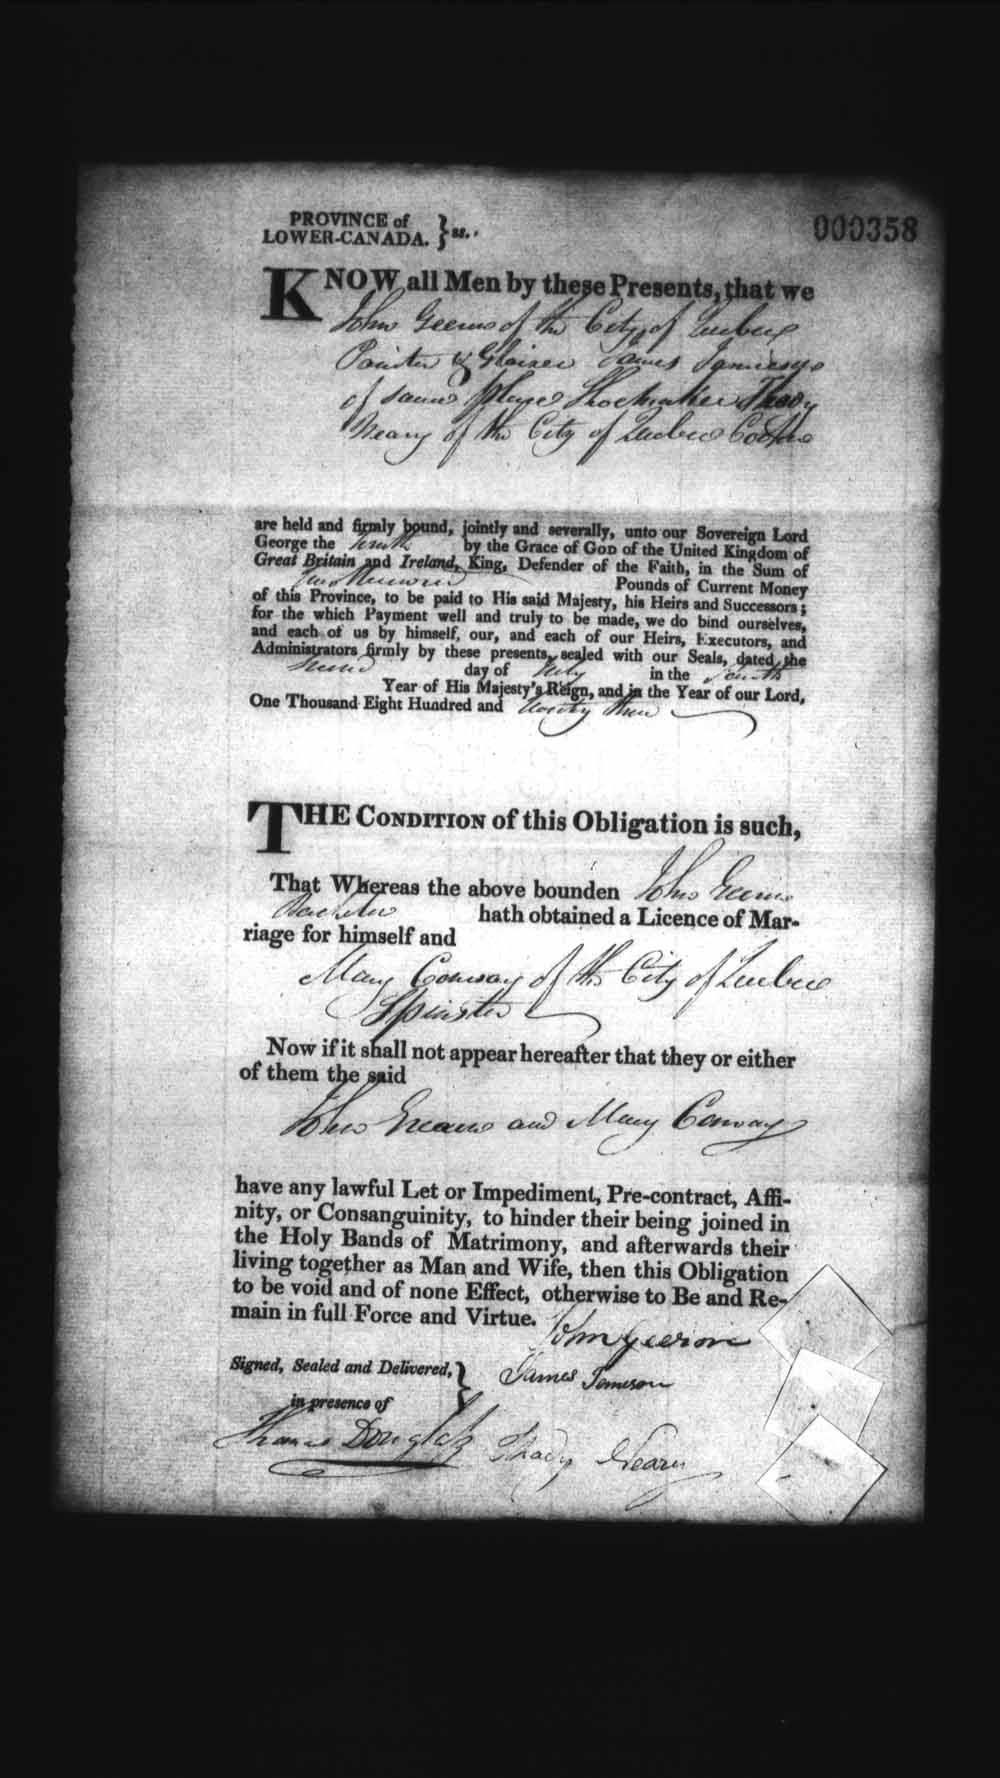 PROVINCE of
LOWER-CANADA. } ss.
000358
KNOW all Men by these Presents, that we
John Geerns of the City of Quebec
Painter & Glaizer James Jamieson
of same place Shoemaker Thady
Neary of the City of Quebec
are held and firmly bound, jointly and severally, unto our Sovereign Lord
George the fourth by the Grace of GOD of the United Kingdom of
Great Britain and Ireland, King, Defender of the Faith, in the Sum of
Two Hundred Pounds of Current Money
of this Province, to be paid to His said Majesty, his Heirs and Successors;
for the which Payment well and truly to be made, we do bind ourselves,
and each of us by himself, our, and each of our Heirs, Executors, and
Administrators firmly by these presents, sealed with our Seals, dated the
day of July in the fourth
Year of His Majesty's Reign, and in the Year of our Lord,
One Thousand Eight Hundred and twenty three
THE CONDITION of this Obligation is such,
That Whereas the above bounden John Geerns
Bachelor hath obtained a Licence of Mar-
riage for himself and
Mary Conway of the City of Quebec
Spinster
Now if it shall not appear hereafter that they or either
of them the said
John and Mary Conway
have any lawful Let or Impediment, Pre-contract, Affi-
nity, or Consanguinity, to hinder their being joined in
the Holy Bands of Matrimony, and afterwards their
living together as Man and Wife, then this Obligation
to be void and of none Effect, otherwise to Be and Re-
main in full Force and Virtue.
John
Signed, Sealed and Delivered, }
James Jameson
in presence of
Douglas Thady Neary